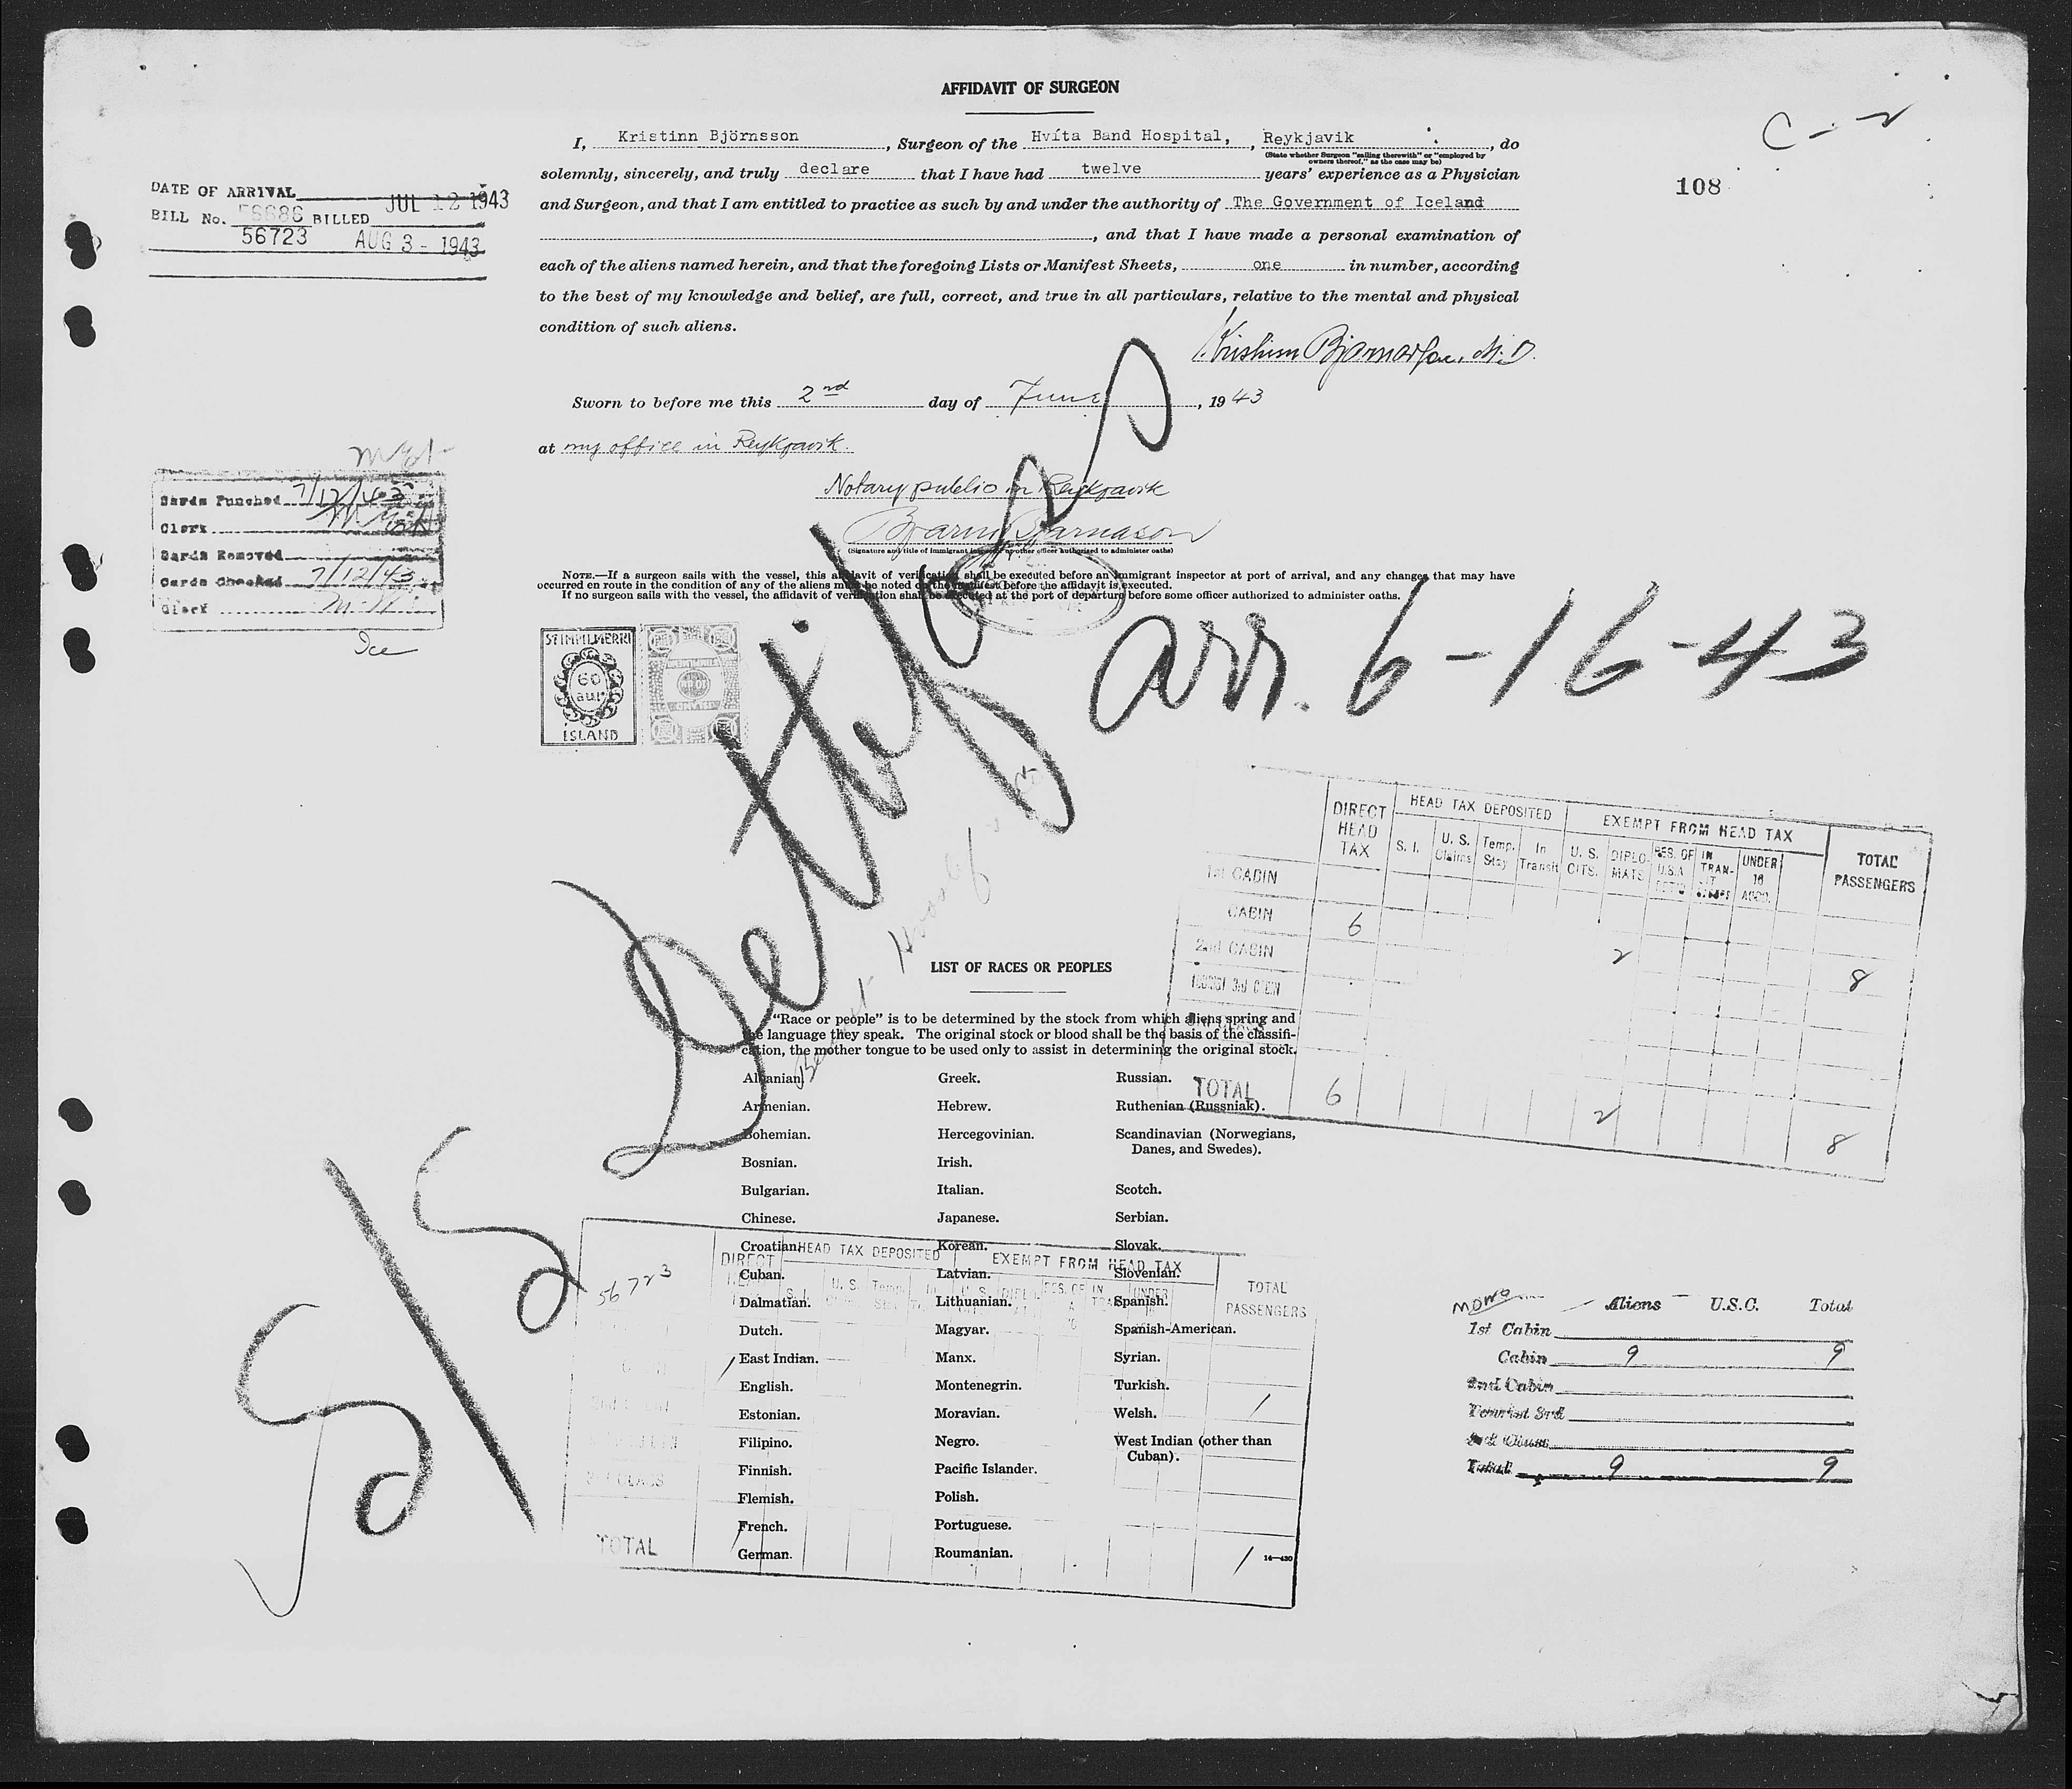 AFFIDAVIT OF SURGEON
C - 2
108
I, Kristinn Björnsson, Surgeon of the Hvíta Band Hospital, , Reykjavik , do
(State whether Surgeon "sailing therewith" or "employed by owners thereof," as the case may be)
solemnly, sincerely, and truly declare that I have had twelve years' experience as a Physician
and Surgeon, and that I am entitled to practice as such by and under the authority of The Government of Iceland
, and that I have made a personal examination of
each of the aliens named herein, and that the foregoing Lists or Manifest Sheets, one in number, according
to the best of my knowledge and belief, are full, correct, and true in all particulars, relative to the mental and physical
condition of such aliens.
M.D.
Sworn to before me this 2nd day of June, 1943
at my office in Reykjavik.
Notary public in Reykjavik
Bjarni Bjarnason
(Signature and title of immigrant inspector or other officer authorized to administer oaths)
NOTE.—If a surgeon sails with the vessel, this affidavit of verification shall be executed before an immigrant inspector at port of arrival, and any changes that may have
occurred en route in the condition of any of the aliens must be noted on the manifest before the affidavit is executed.
If no surgeon sails with the vessel, the affidavit of verification shall be executed at the port of departure before some officer authorized to administer oaths.
DATE OF ARRIVAL
JUL 12 1943
BILL No. 56686 BILLED
56723 AUG 3 - 1943
Cards Punched 7/12/43
Clerk
Cards Removed
Cards Checked 7/12/43
Clerk
Ice
STIMPILMERKI
60
aur
ÍSLAND
S/S Dettifoss
arr. 6-16-43
DIRECT HEAD TAX
HEAD TAX DEPOSITED
EXEMPT FROM HEAD TAX
TOTAL PASSENGERS
S. I.
U. S. Claims
Temp. Stay
In Transit
U. S. CITS.
DIPLO-MATS
RES. OF U.S.A
IN TRAN-SIT
UNDER 16 ACCO.
1st CABIN
CABIN 6 2 8
2nd CABIN
TOTAL 6 2 8
LIST OF RACES OR PEOPLES
"Race or people" is to be determined by the stock from which aliens spring and
the language they speak. The original stock or blood shall be the basis of the classifi-
cation, the mother tongue to be used only to assist in determining the original stock.
Albanian. Greek. Russian.
Armenian. Hebrew. Ruthenian (Russniak).
Bohemian. Hercegovinian. Scandinavian (Norwegians,
Danes, and Swedes).
Bosnian. Irish.
Bulgarian. Italian. Scotch.
Chinese. Japanese. Serbian.
Croatian. Korean. Slovak.
Cuban. Latvian. Slovenian.
Dalmatian. Lithuanian. Spanish.
Dutch. Magyar. Spanish-American.
East Indian. Manx. Syrian.
English. Montenegrin. Turkish.
Estonian. Moravian. Welsh.
Filipino. Negro. West Indian (other than
Cuban).
Finnish. Pacific Islander.
Flemish. Polish.
French. Portuguese.
German. Roumanian.
16—430
56723
DIRECT
HEAD TAX DEPOSITED
EXEMPT FROM HEAD TAX
TOTAL PASSENGERS
U. S.
Temp.
RES. OF
IN
UNDER
1 1
CLASS
TOTAL 1 1
Aliens U.S.C. Total
1st Cabin
Cabin 9 9
2nd Cabin
Tourist 3rd
3rd Class
Total 9 9